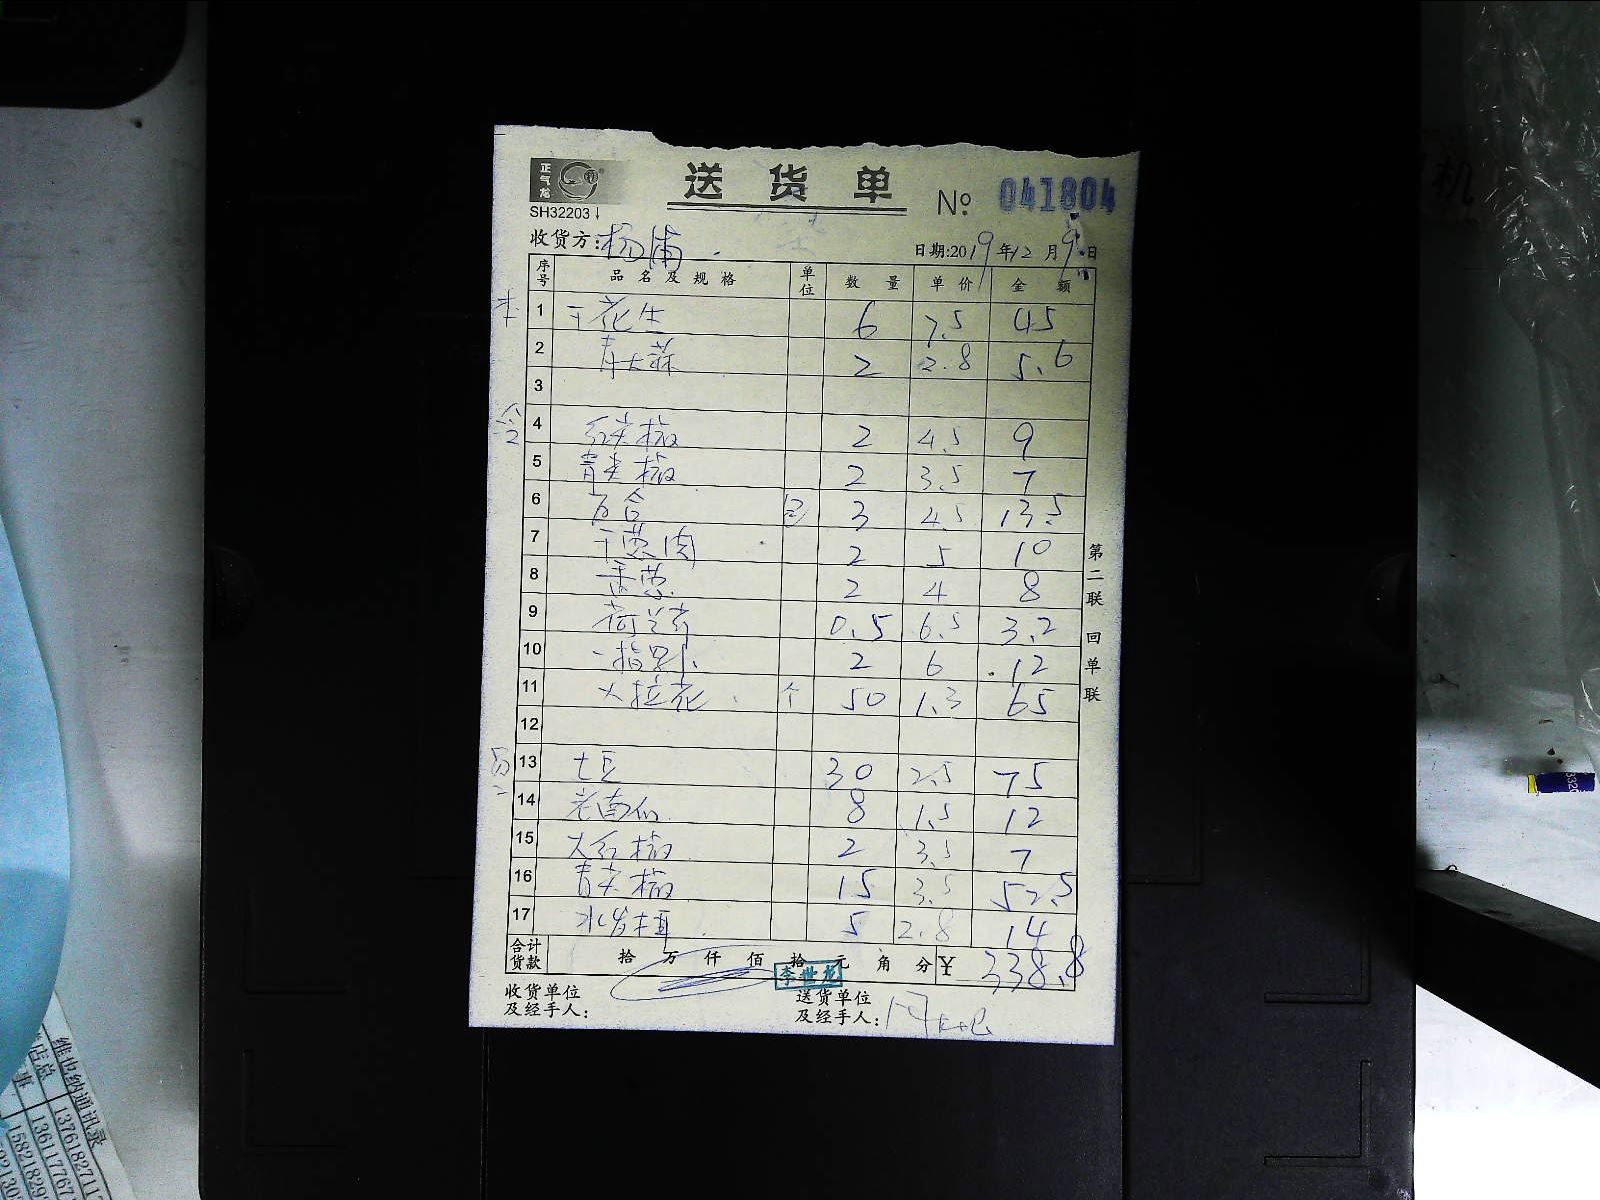 正气龙
送 货 单
№ 041804
SH32203
收货方: 杨浦
日期:2019年12月9日
序号 品名及规格 单位 数量 单价 金额
1 干花生 6 7.5 45
2 青大蒜 2 2.8 5.6
3
4 红尖椒 2 4.5 9
5 青尖椒 2 3.5 7
6 百合 包 3 4.5 13.5
7 干葱肉 2 5 10
8 香葱 2 4 8
9 荷兰芹 0.5 6.5 3.2
10 2 6 12
11 大拉花 个 50 1.3 65
12
13 土豆 30 2.5 75
14 老南瓜 8 1.5 12
15 大红椒 2 3.5 7
16 青尖椒 15 3.5 52.5
17 水发木耳 5 2.8 14
合计货款 拾 万 仟 佰 拾 元 角 分 ¥ 338.8
李世龙
收货单位及经手人:
送货单位及经手人:
第二联 回单联
维也纳通讯录